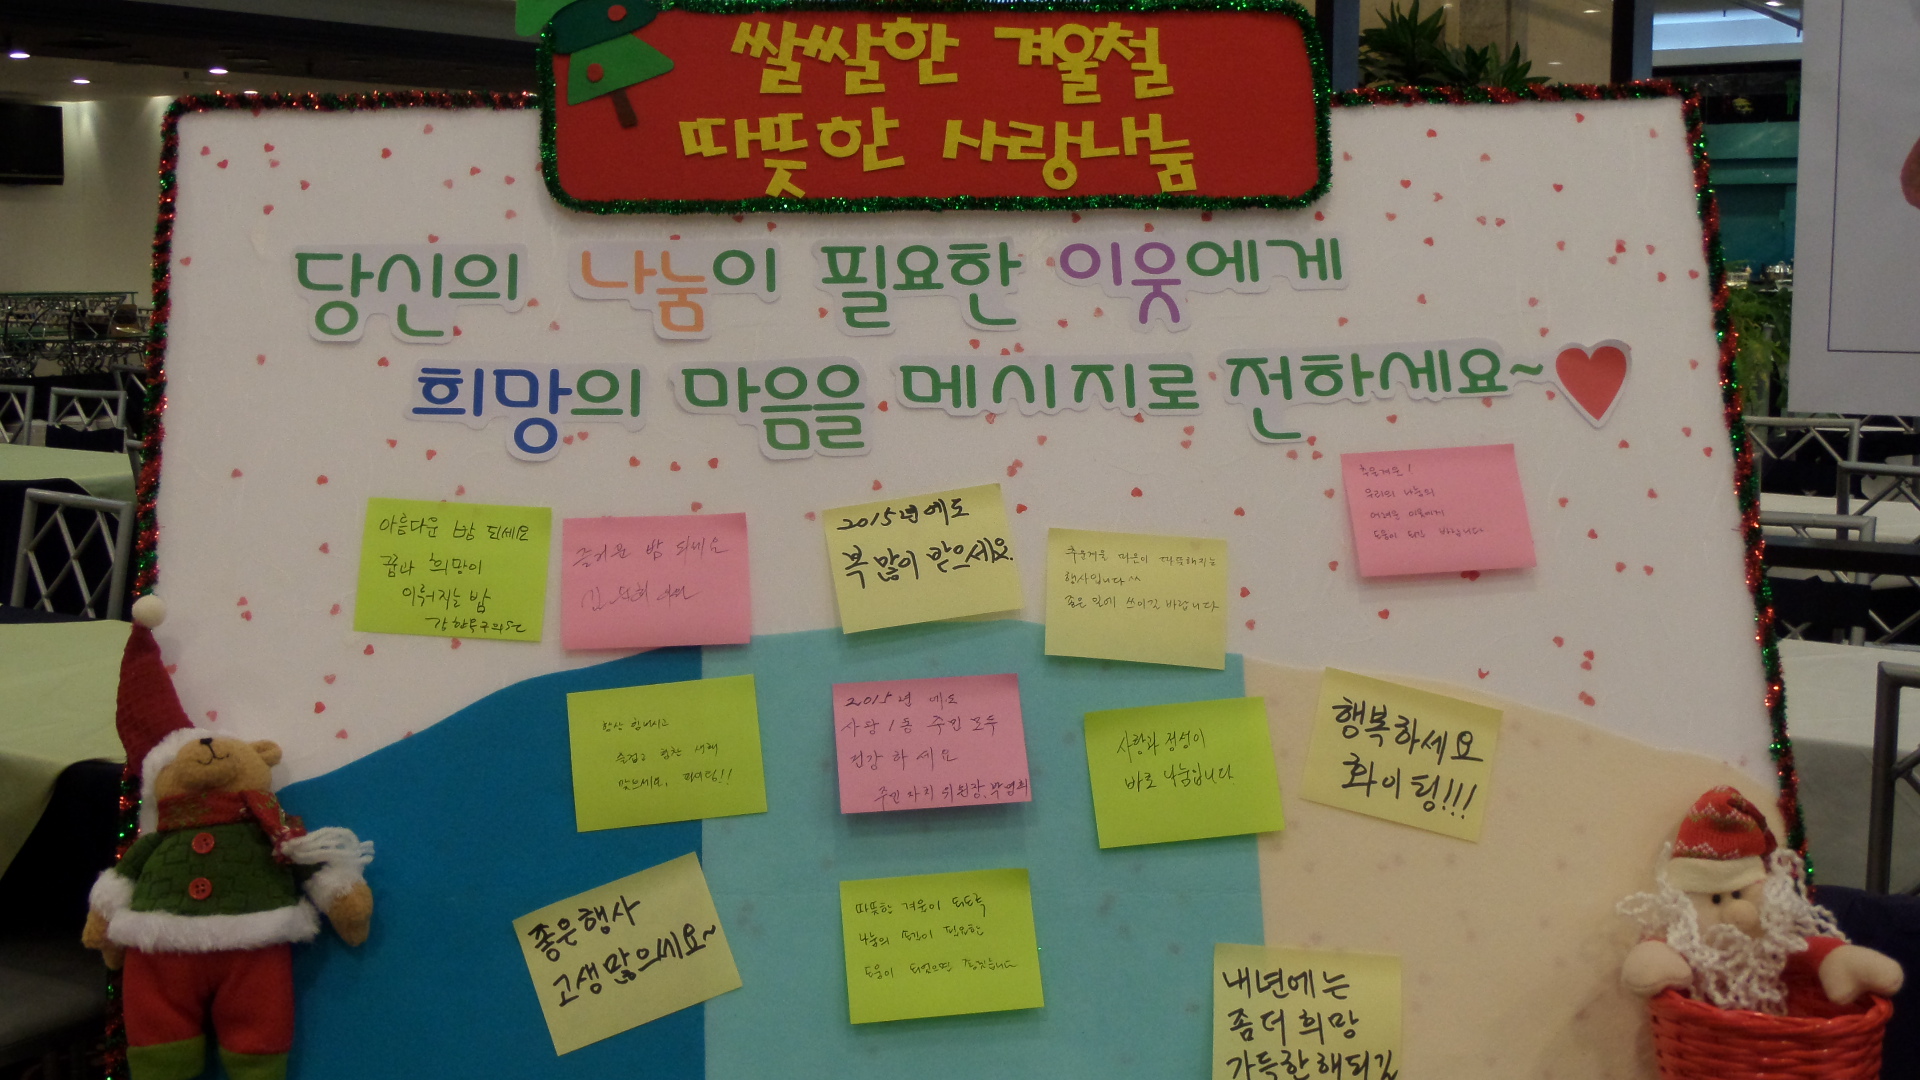 쌀쌀한 겨울철
따뜻한 사랑나눔
당신의 나눔이 필요한 이웃에게
희망의 마음을 메시지로 전하세요~
아름다운 밤 되세요
꿈과 희망이
이뤄지는 밤
즐거운 밤 되세요
2015년에도
복 많이 받으세요.
추운겨울 마음이 따뜻해지는
행사입니다^^
좋은 일에 쓰이길 바랍니다
추운겨울!
우리의 나눔의
어려운 이웃에게
도움이 되길 바랍니다
항상 힘내시고
즐겁고 힘찬 새해
맞으세요, 파이팅!!
2015년 에도
사당1동 주민 모두
건강 하 세요
주민자치 위원장.박영희
사랑과 정성이
바로 나눔입니다
행복하세요
화이팅!!!
좋은행사
고생많으세요~
따뜻한 겨울이 되도록
나눔의 손길이 필요한
도움이 되었으면 좋겠습니다
내년에는
좀더 희망
가득한해되길